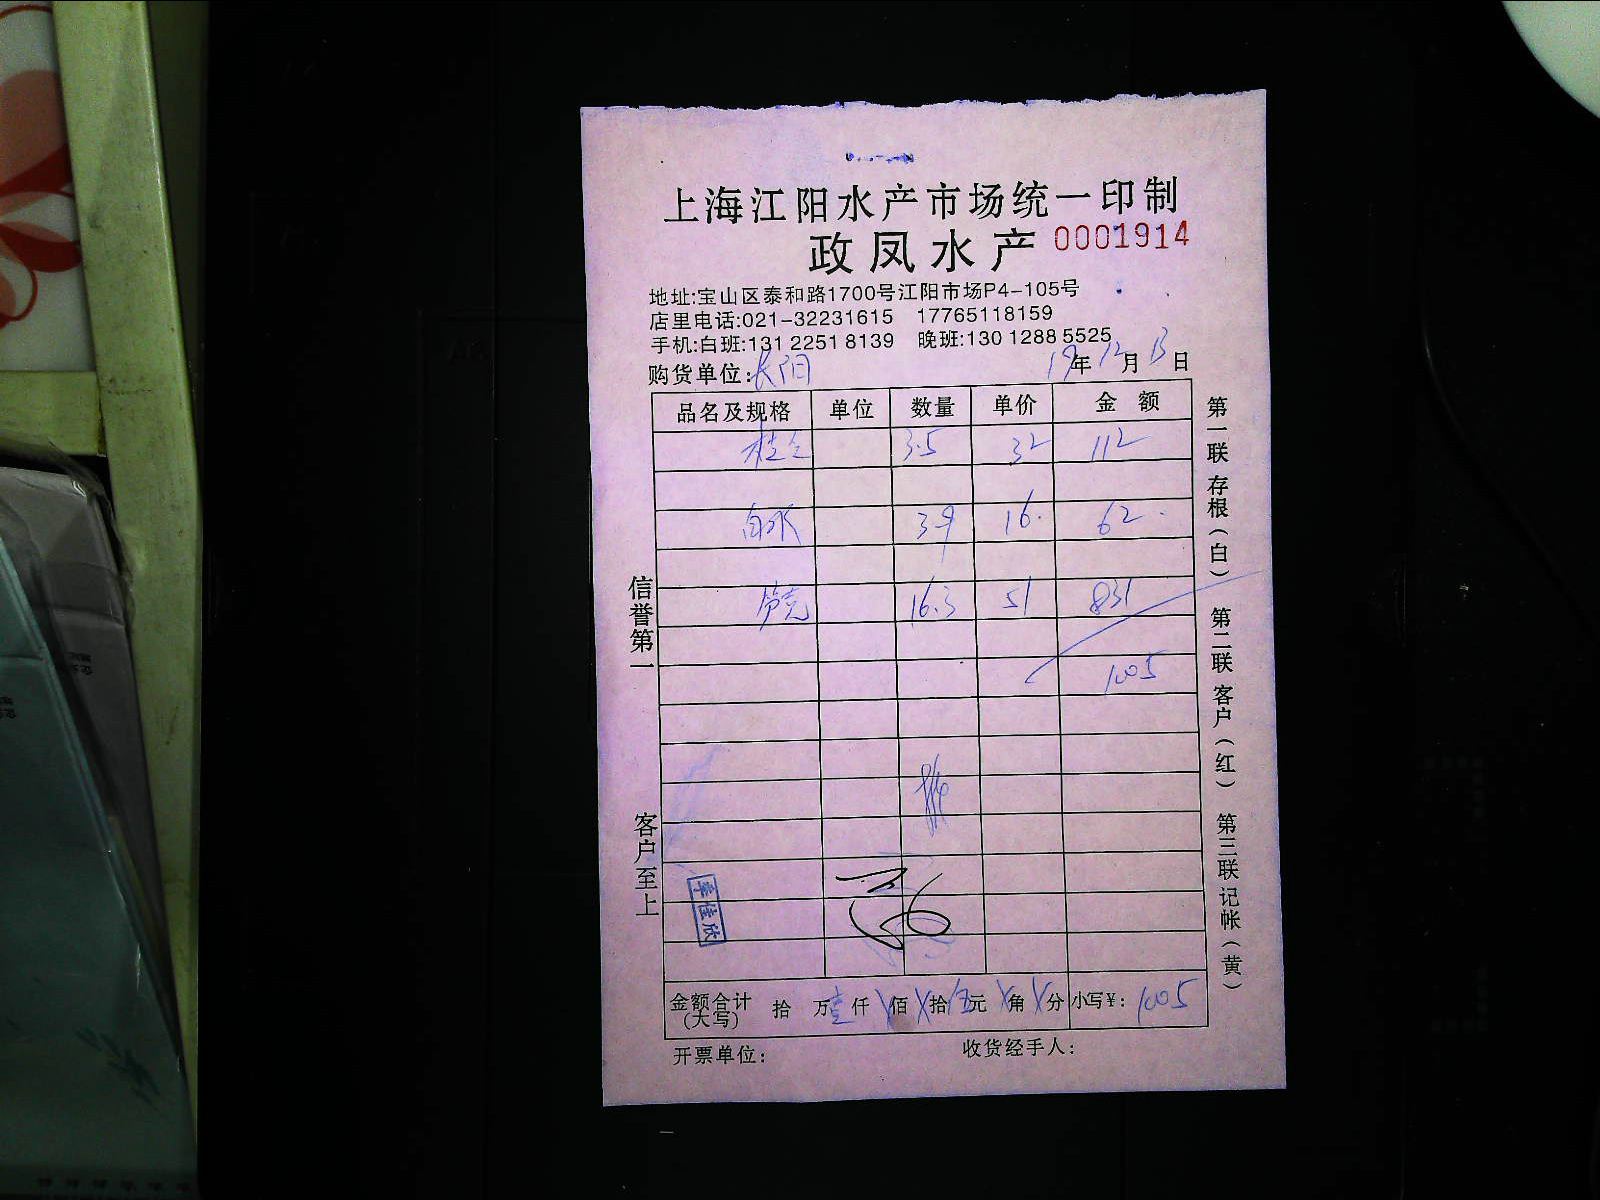 上海江阳水产市场统一印制
政凤水产 0001914
地址:宝山区泰和路1700号江阳市场P4-105号
店里电话:021-32231615 17765118159
手机:白班:131 2251 8139 晚班:130 1288 5525
购货单位:长阳 19年12月13日
品名及规格 单位 数量 单价 金额
3.5 32 112
白水 3.9 16. 62.
16.3 51 831
1005
李佳欣
金额合计(大写) 拾 万壹仟 佰 拾伍元 角 分 小写¥: 1005
开票单位: 收货经手人:
信誉第一
客户至上
第一联 存根(白) 第二联 客户(红) 第三联 记帐(黄)